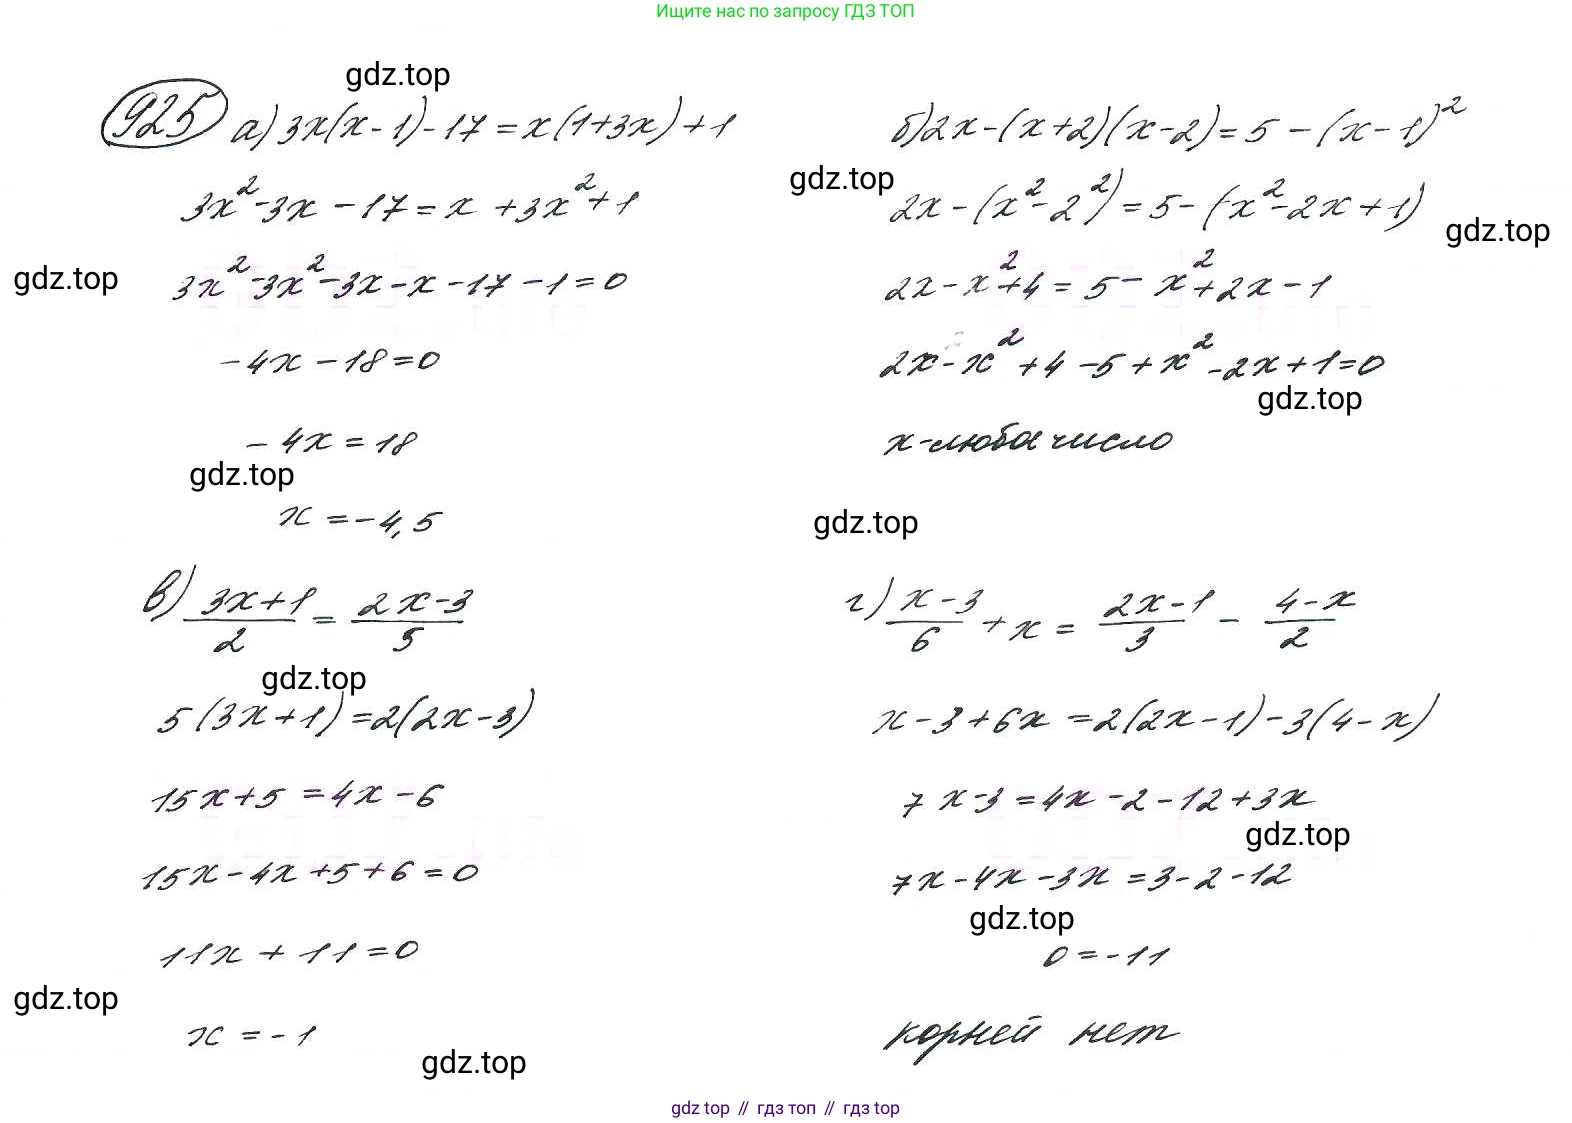 Ищите нас по запросу ГДЗ ТОП
gdz.top
925 а) 3x(x-1)-17=x(1+3x)+1
3x²-3x-17=x+3x²+1
gdz.top
3x²-3x²-3x-x-17-1=0
-4x-18=0
-4x=18
gdz.top
x=-4,5
б) 2x-(x+2)(x-2)=5-(x-1)²
gdz.top
2x-(x²-2²)=5-(x²-2x+1)
gdz.top
2x-x²+4=5-x²+2x-1
2x-x²+4-5+x²-2x+1=0
gdz.top
x-люба число
gdz.top
в) (3x+1)/2=(2x-3)/5
gdz.top
5(3x+1)=2(2x-3)
15x+5=4x-6
15x-4x+5+6=0
11x+11=0
gdz.top
x=-1
gdz.top
г) (x-3)/6+x=(2x-1)/3-(4-x)/2
x-3+6x=2(2x-1)-3(4-x)
7x-3=4x-2-12+3x
gdz.top
7x-4x-3x=3-2-12
gdz.top
0=-11
корней нет
gdz top // гдз топ // гдз top